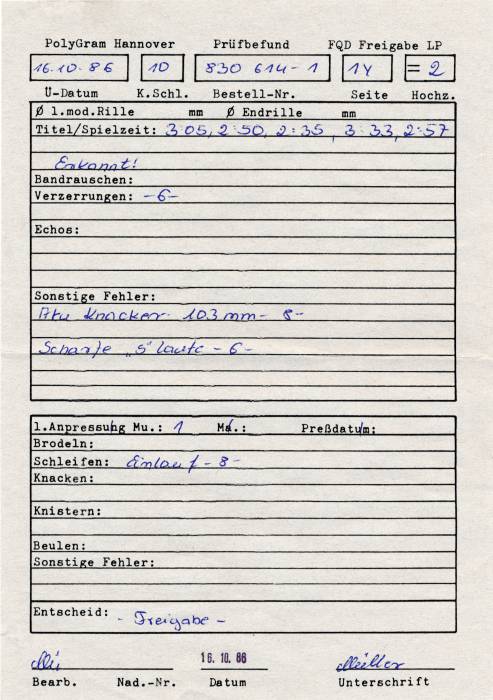 PolyGram Hannover Prüfbefund FQD Freigabe LP
16.10.86 10 830 614-1 1Y = 2
U-Datum K.Schl. Bestell-Nr. Seite Hochz.
Ø 1.mod.Rille mm Ø Endrille mm
Titel/Spielzeit: 3:05, 2:50, 2:35, 3:33, 2:57
Erkannt!
Bandrauschen:
Verzerrungen: -6-
Echos:
Sonstige Fehler:
Knacker 103mm - 8-
Scharfe "S" laute - 6-
1.Anpressung Mu.: 1 Ma.: Preßdatum:
Brodeln:
Schleifen: Einlauf - 8-
Knacken:
Knistern:
Beulen:
Sonstige Fehler:
Entscheid: - Freigabe -
16.10.86 Müller
Bearb. Nad.-Nr. Datum Unterschrift